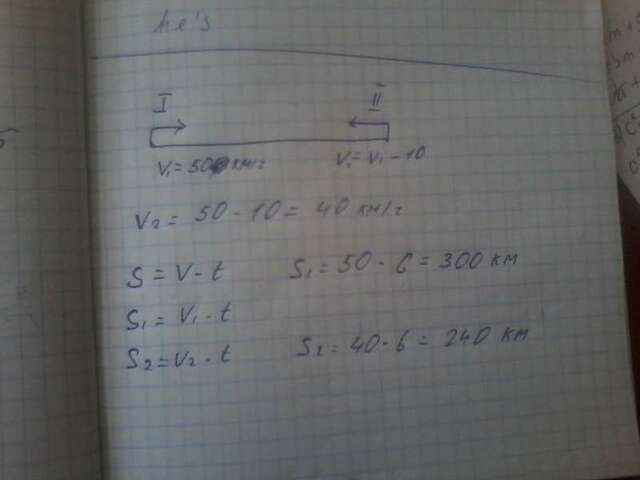 he's
I II
V₁ = 50 км/г V₂ = V₁ - 10
V₂ = 50 - 10 = 40 км/г
S = V · t S₁ = 50 · 6 = 300 км
S₁ = V₁ · t
S₂ = V₂ · t S₂ = 40 · 6 = 240 км